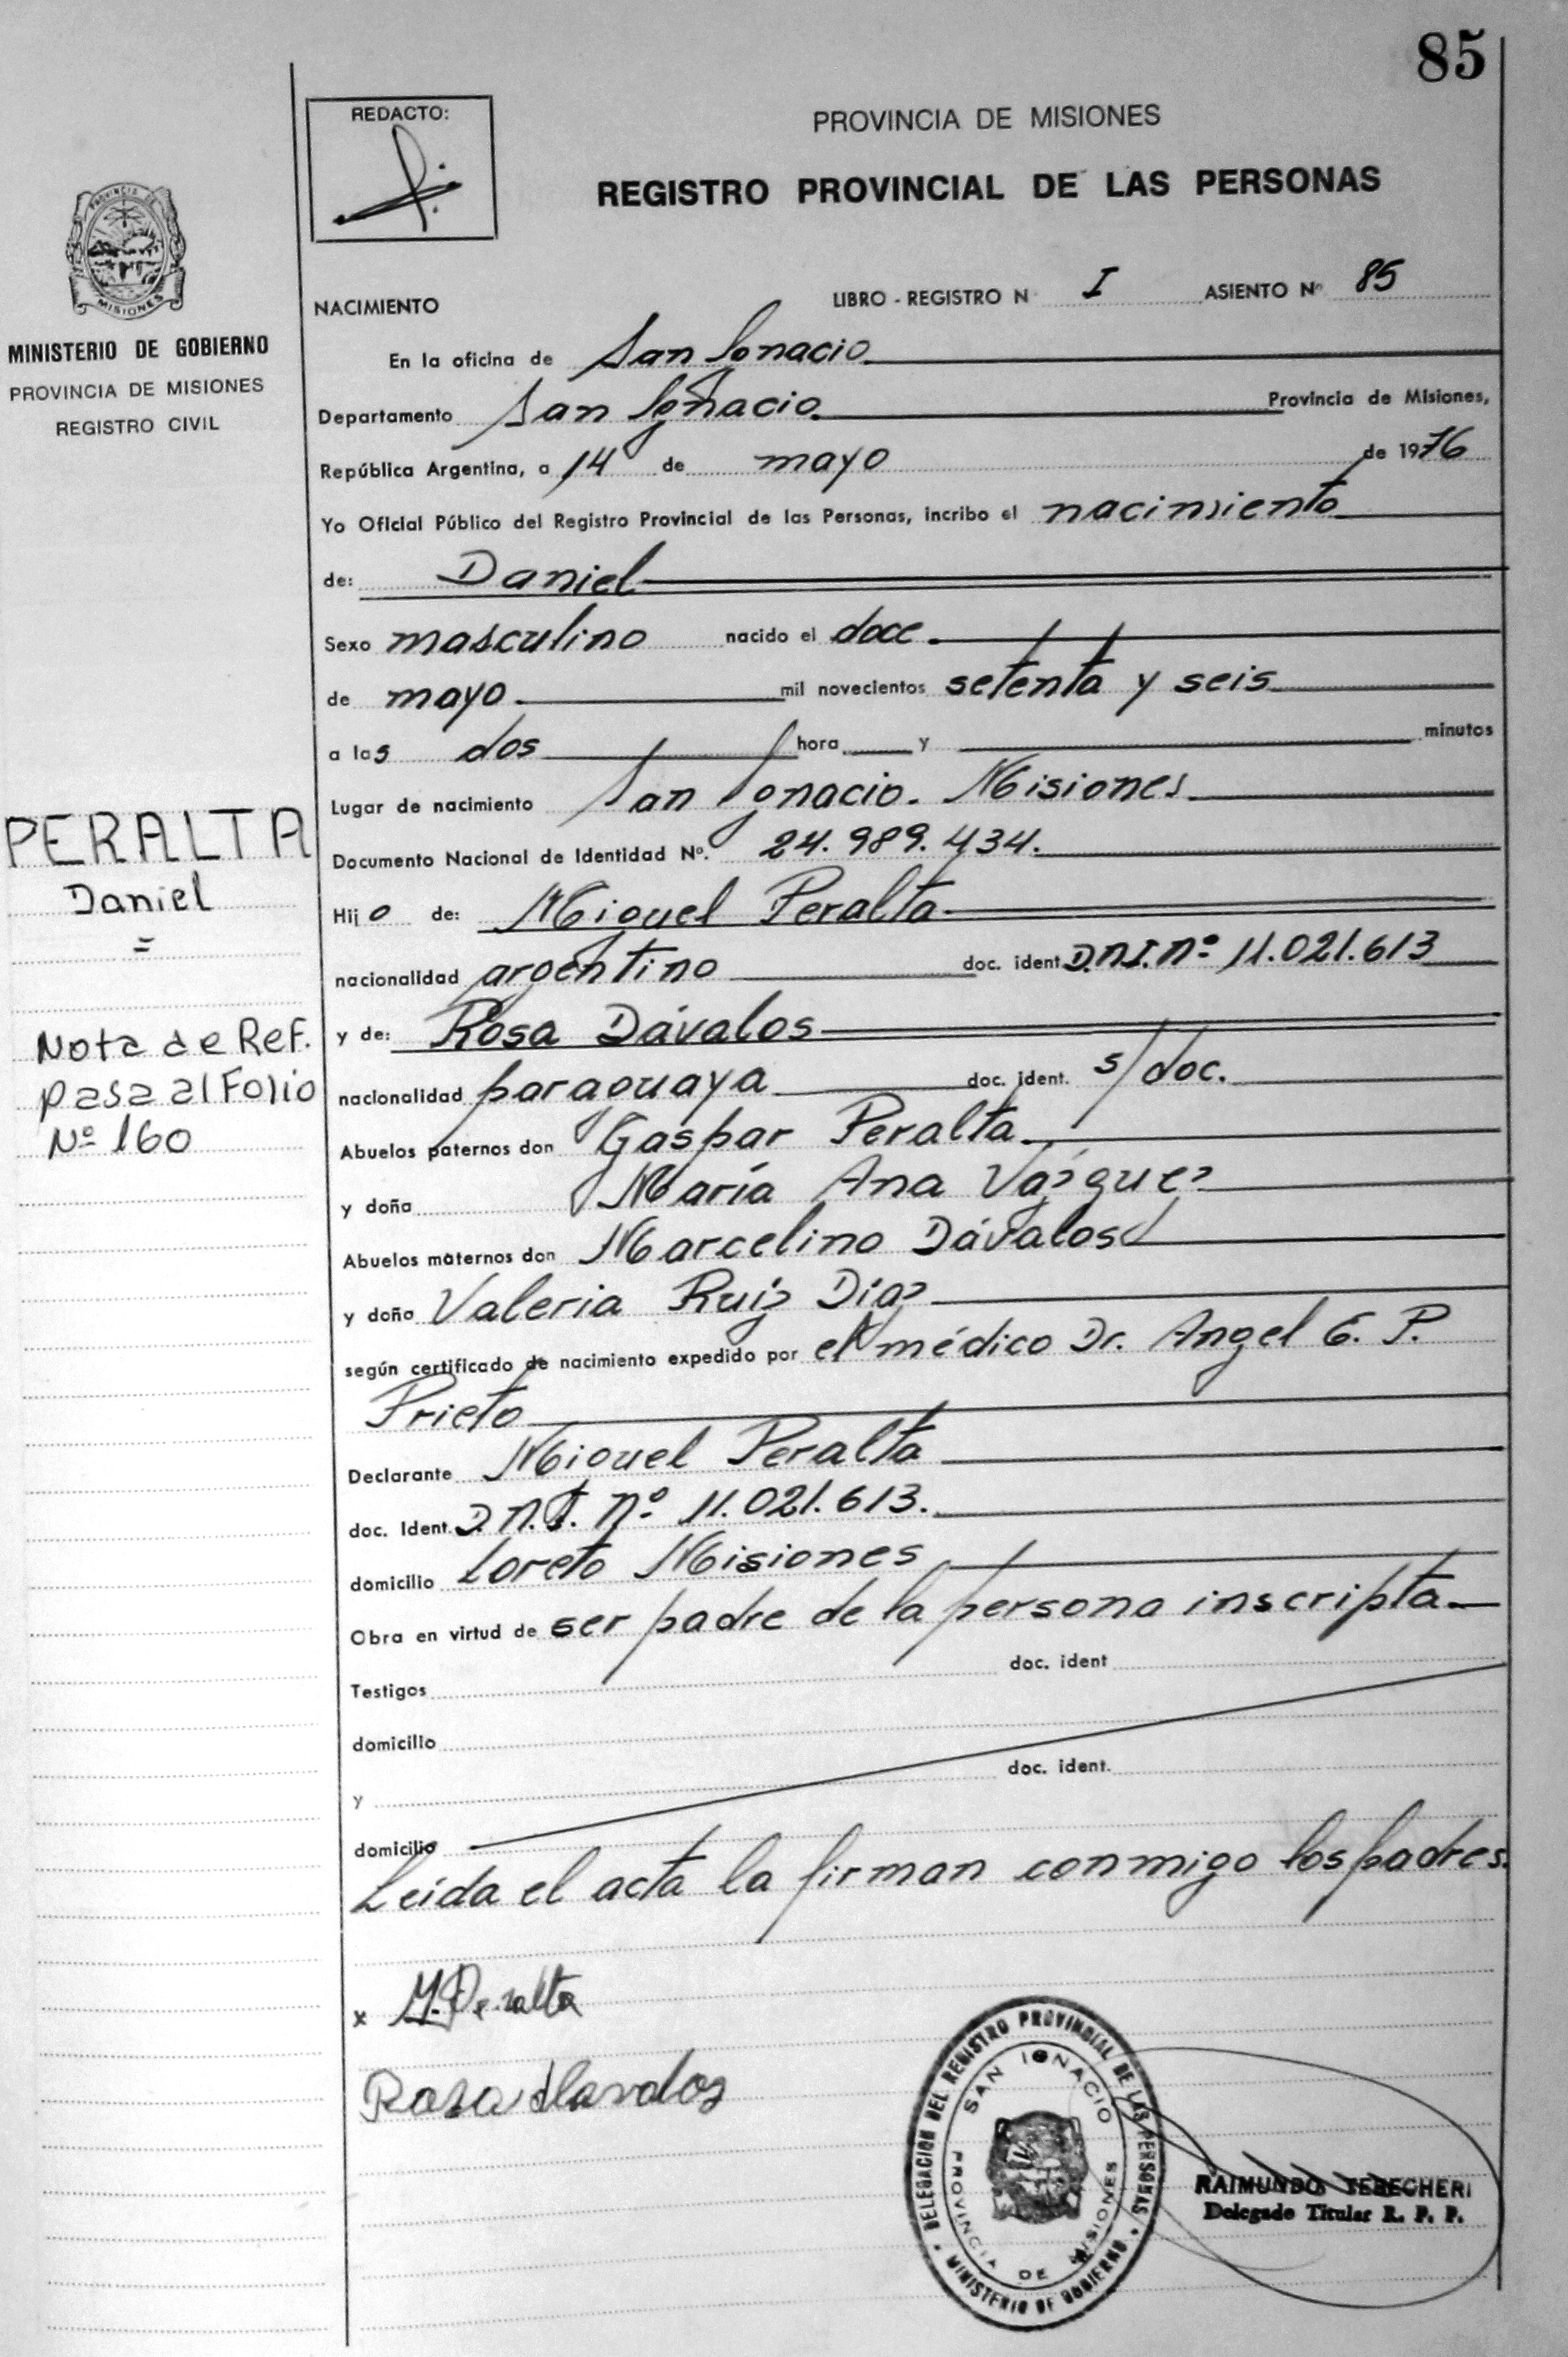 85
REDACTO:
PROVINCIA DE MISIONES
REGISTRO PROVINCIAL DE LAS PERSONAS
PROVINCIA DE MISIONES
MINISTERIO DE GOBIERNO
PROVINCIA DE MISIONES
REGISTRO CIVIL
NACIMIENTO LIBRO - REGISTRO N I ASIENTO Nº 85
En la oficina de San Ignacio
Departamento San Ignacio Provincia de Misiones,
República Argentina, a 14 de mayo de 1976
Yo Oficial Público del Registro Provincial de las Personas, incribo el nacimiento
de: Daniel
Sexo masculino nacido el doce
de mayo mil novecientos setenta y seis
a las dos hora y minutos
Lugar de nacimiento San Ignacio. Misiones
Documento Nacional de Identidad Nº. 24.989.434.
Hijo de: Miguel Peralta
nacionalidad argentino doc. ident. D.N.I. Nº 11.021.613
y de: Rosa Dávalos
nacionalidad paraguaya doc. ident. s/doc.
Abuelos paternos don Gaspar Peralta
y doña María Ana Vázquez
Abuelos maternos don Marcelino Dávalos
y doña Valeria Ruiz Diaz
según certificado de nacimiento expedido por el médico Dr. Angel E. P.
Prieto
Declarante Miguel Peralta
doc. Ident. D.N.I. Nº 11.021.613.
domicilio Loreto Misiones
Obra en virtud de ser padre de la persona inscripta
Testigos doc. ident
domicilio
y doc. ident.
domicilio
Leída el acta la firman conmigo los padres.
PERALTA
Daniel
=
Nota de Ref.
pasa al Folio
Nº 160
x M. Peralta
Rosa davalos
DELEGACION DEL REGISTRO PROVINCIAL DE LAS PERSONAS
SAN IGNACIO
PROVINCIA DE MISIONES
MINISTERIO DE GOBIERNO
RAIMUNDO
Delegado Titular R. P. P.